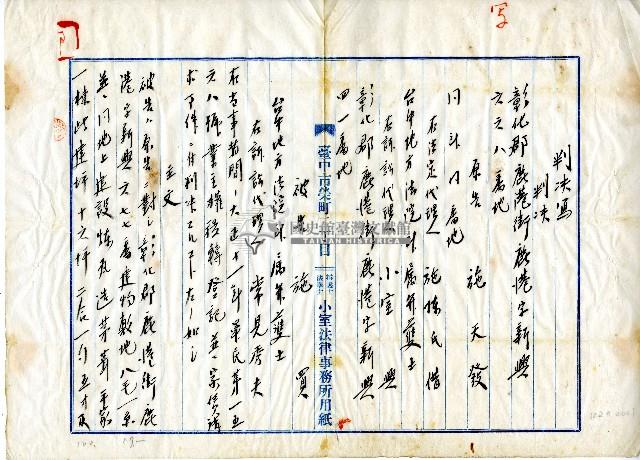 写
判决寫
判决
彰化郡鹿港街鹿港字新興
六六八番地
原告 施天發
同所同番地
右法定代理人 施陳氏借
台中地方法院所屬弁護士
右訴訟代理人 小室 興
彰化郡鹿港街鹿港字新興
四一番地
被告 施 買
台中地方法院所屬弁護士
右訴訟代理人 常見秀夫
右當事者間ノ大正十一年單民第一五
六八號業主權移轉登記並家屋請
求事件ニ付判決スルコト左ノ如シ
主文
被告ハ原告ニ對シ彰化郡鹿港街鹿
港字新興六七七番建物敷地八毛一糸
並ニ同地上建設煉瓦造茅葺平家
一棟此建坪十六坪二合一勺五才及
臺中市榮町二丁目
小室法律事務所用紙
國史館臺灣文獻館
TAIWAN HISTORICA